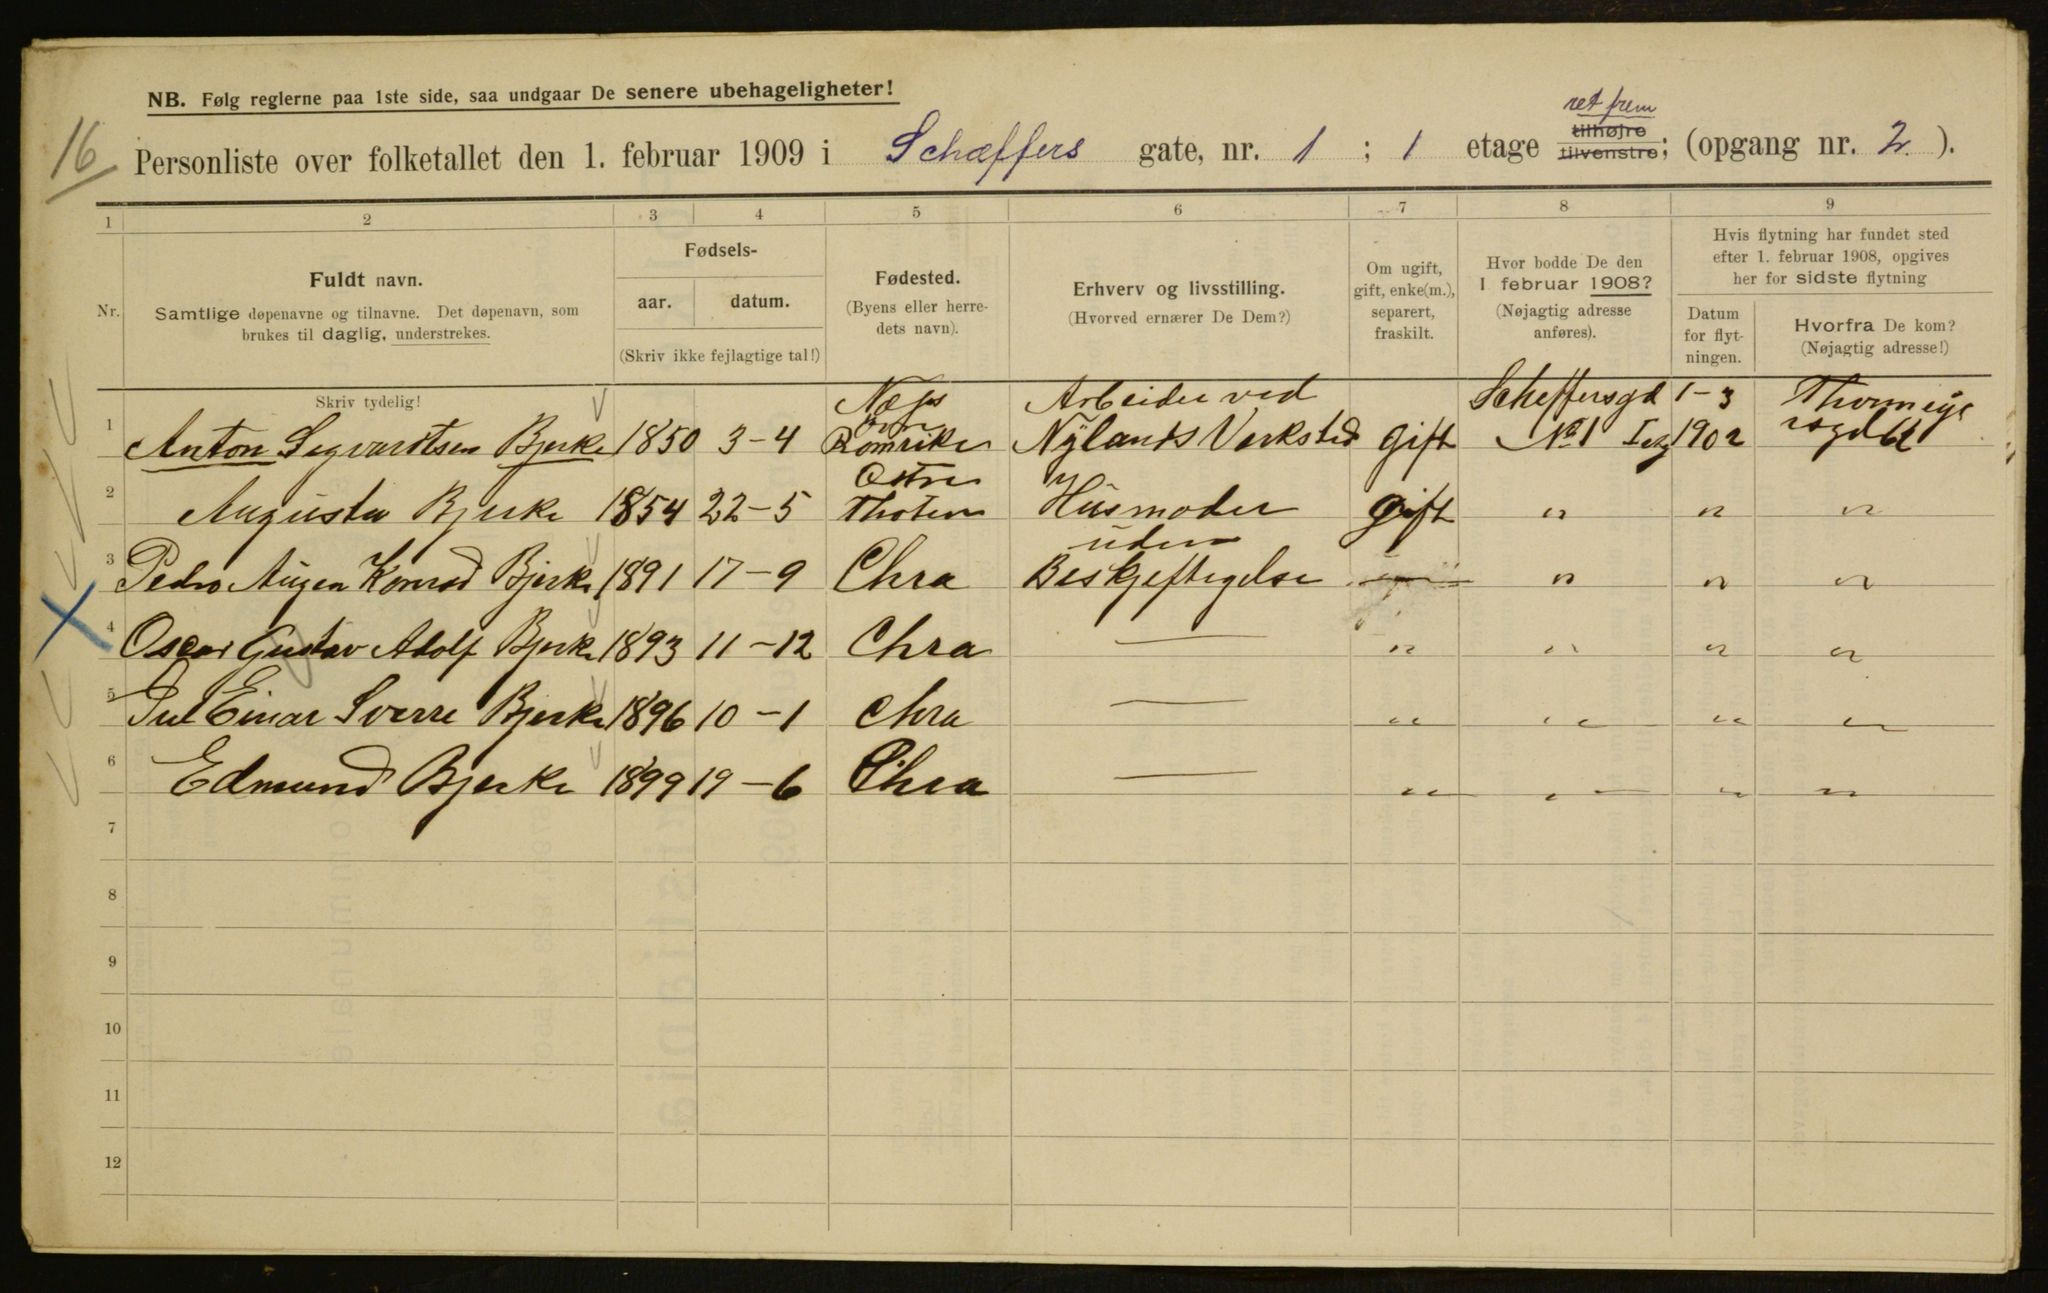 NB. Følg reglerne paa 1ste side, saa undgaar De senere ubehageligheter!
16
ret frem
Personliste over folketallet den 1. februar 1909 i Schæffers gate, nr. 1 ; 1 etage tilhøjre tilvenstre; (opgang nr. 2. ).
1 2 3 4 5 6 7 8 9
Nr.
Fuldt navn.
Samtlige døpenavne og tilnavne. Det døpenavn, som
brukes til daglig, understrekes.
Skriv tydelig!
Fødsels-
aar. datum.
(Skriv ikke fejlagtige tal!)
Fødested.
(Byens eller herre-
dets navn).
Erhverv og livsstilling.
(Hvorved ernærer De Dem?)
Om ugift,
gift, enke(m.),
separert,
fraskilt.
Hvor bodde De den
1 februar 1908?
(Nøjagtig adresse
anføres).
Hvis flytning har fundet sted
efter 1. februar 1908, opgives
her for sidste flytning
Datum
for flyt-
ningen.
Hvorfra De kom?
(Nøjagtig adresse!)
Næs Arbeider ved Scheffersgd 1-3
1 Anton Segvardtsen Bjerke 1850 3-4 Romrike Nylands Verksted gift No 1 1902
Østre
2 Augusta Bjerke 1854 22-5 Thoten Husmoder gift " " "
uden
3 Pedro Augen Konrad Bjerke 1891 17-9 Chra Beskjeftigelse " " "
4 Oscar Gustav Adolf Bjerke 1893 11-12 Chra — " " " "
5 Einar Sverre Bjerke 1896 10-1 Chra — " " " "
6 Edmund Bjerke 1899 19-6 Chra — " " " "
7
8
9
10
11
12